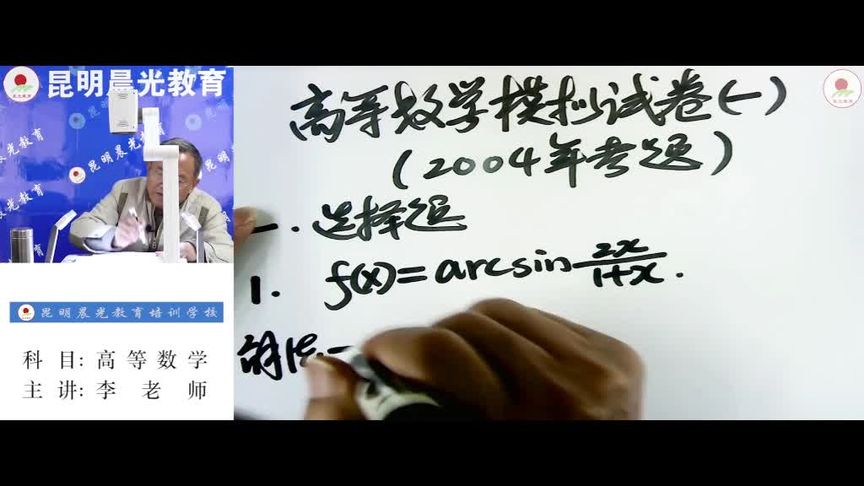 昆明晨光教育
昆明晨光教育
昆明晨光教育培训学校
科目:高等数学
主讲:李老师
高等数学模拟试卷(一)
(2004年考题)
一.选择题
1. f(x)=arcsin 2x/1+x.
的